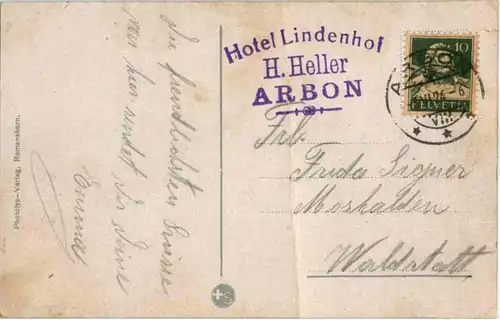 Die freundlichsten Grüsse
von hier sendet Dir Deine
Emma
Phototyp-Verlag, Romanshorn.
Hotel Lindenhof
H. Heller
ARBON
10
HELVETIA
Frl.
Frida Signer
Moshalden
Waldstatt
S